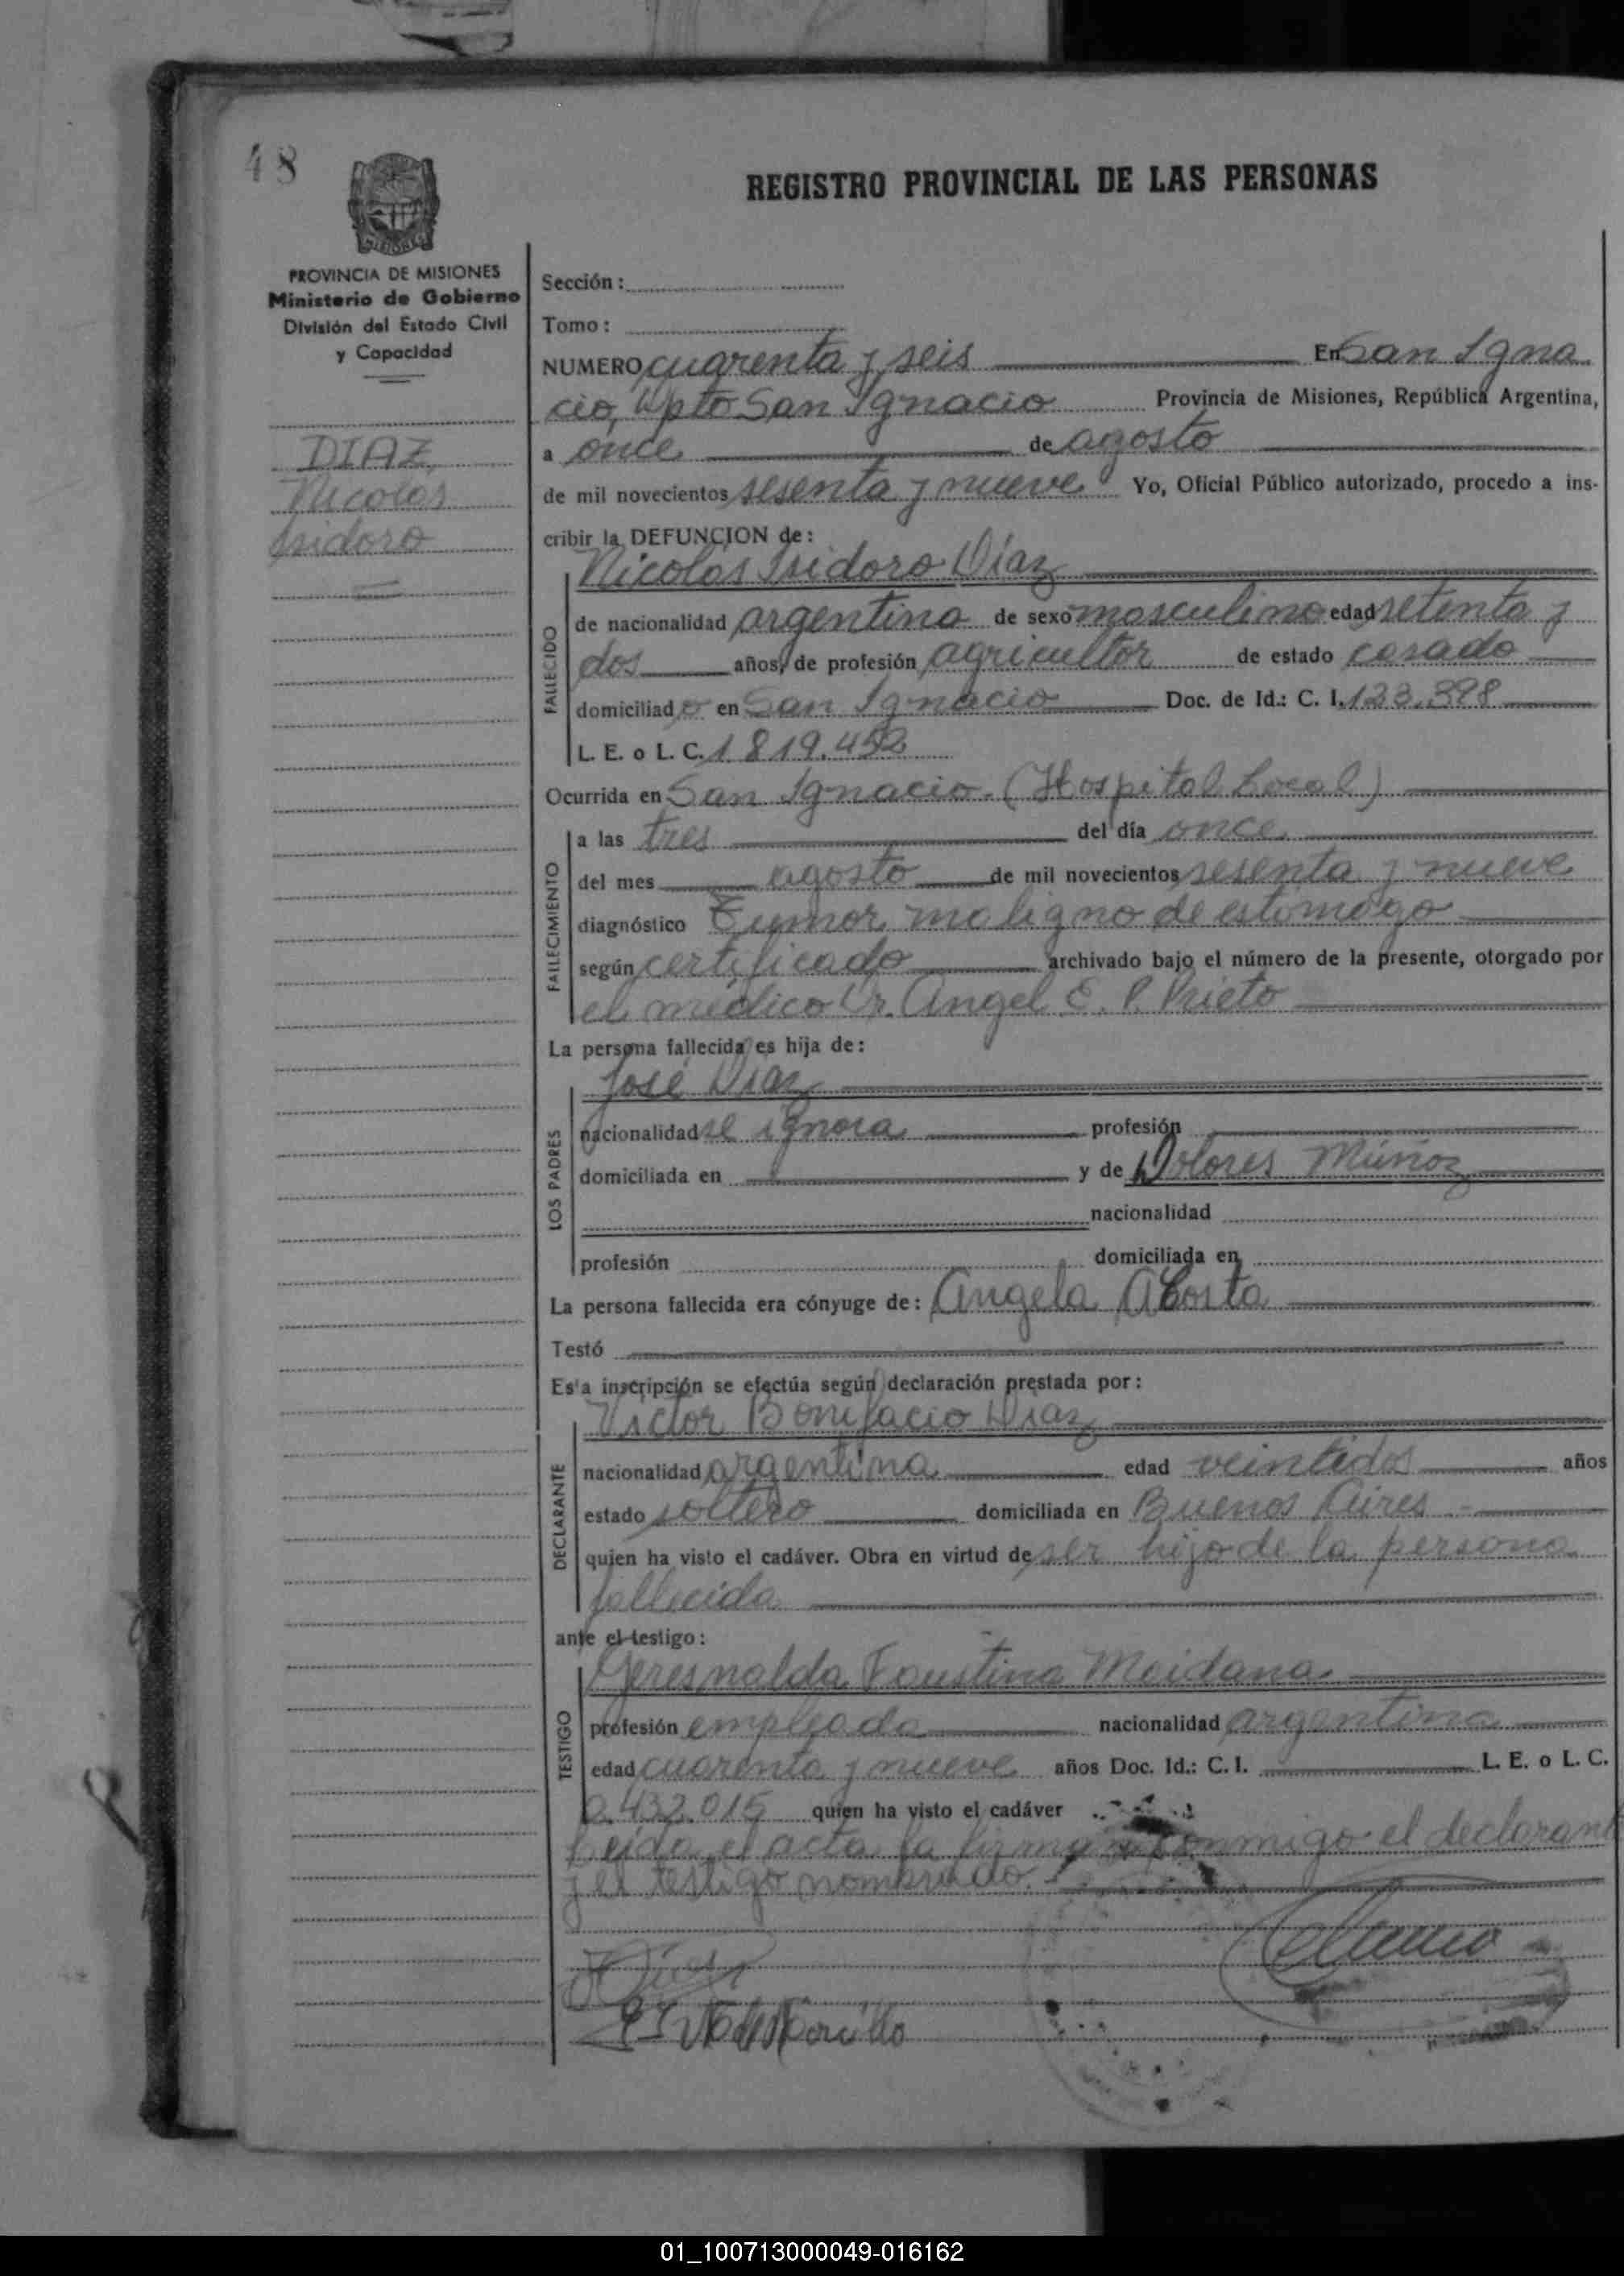 48
MISIONES
REGISTRO PROVINCIAL DE LAS PERSONAS
PROVINCIA DE MISIONES
Ministerio de Gobierno
División del Estado Civil
y Capacidad
DIAZ,
Nicolás
Isidoro
Sección:
Tomo:
NUMERO cuarenta y seis En San Igna
cio, Dpto San Ignacio Provincia de Misiones, República Argentina,
a once de agosto
de mil novecientos sesenta y nueve Yo, Oficial Público autorizado, procedo a ins-
cribir la DEFUNCION de:
Nicolás Isidoro Díaz
FALLECIDO
de nacionalidad argentina de sexo masculino edad setenta y
dos años, de profesión agricultor de estado casado
domiciliado en San Ignacio Doc. de Id.: C. I. 123.398
L. E. o L. C. 1.819.452
Ocurrida en San Ignacio. (Hospital Local)
FALLECIMIENTO
a las tres del día once
del mes agosto de mil novecientos sesenta y nueve
diagnóstico Tumor maligno de estómago
según certificado archivado bajo el número de la presente, otorgado por
el médico Dr. Angel E. P. Prieto
La persona fallecida es hija de:
José Díaz
LOS PADRES
nacionalidad se ignora profesión
domiciliada en y de Dolores Múñoz
nacionalidad
profesión domiciliada en
La persona fallecida era cónyuge de: Angela Acosta
Testó
Esta inscripción se efectúa según declaración prestada por:
Víctor Bonifacio Díaz
DECLARANTE
nacionalidad argentina edad veintidos años
estado soltero domiciliada en Buenos Aires
quien ha visto el cadáver. Obra en virtud de ser hijo de la persona
fallecida
ante el testigo:
Faustina Meidana
TESTIGO
profesión empleada nacionalidad argentina
edad cuarenta y nueve años Doc. Id.: C. I. L. E. o L. C.
2.432.015 quien ha visto el cadáver
Leída el acta la firman conmigo el declarant
y el testigo nombrado.
01_100713000049-016162